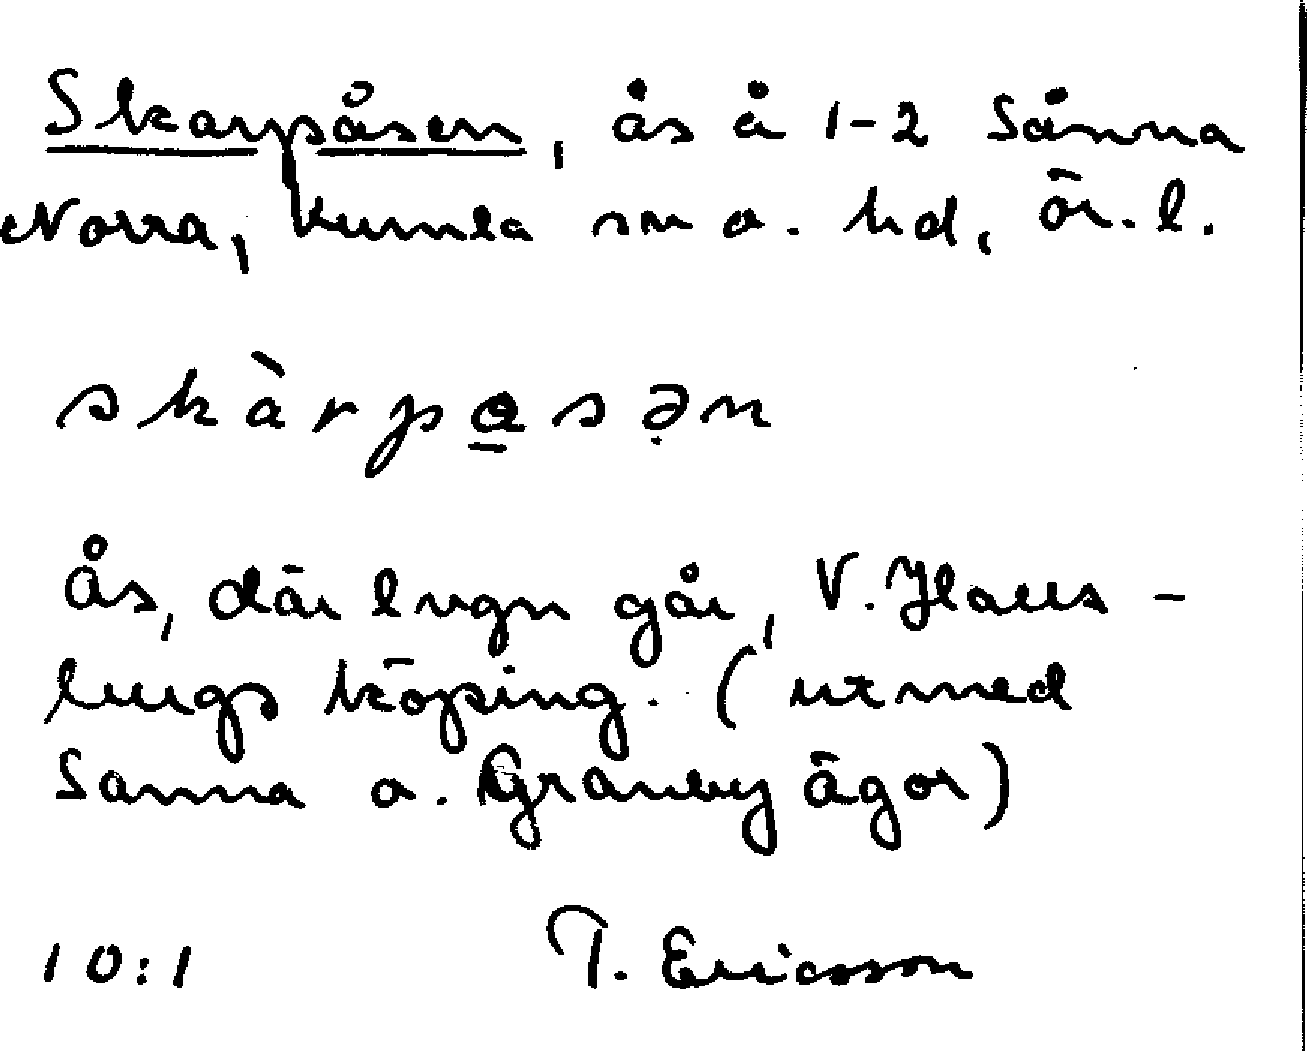 Skarpåsen, ås å 1-2 Sånna
Norra, Kumla sn o. hd, Ör. l.
skàrpa̱sə̣n
Ås, där lvgn går, V. Halls-
bergs köping. (utmed
Sanna o. Granby ägor)
10:1 T. Ericsson